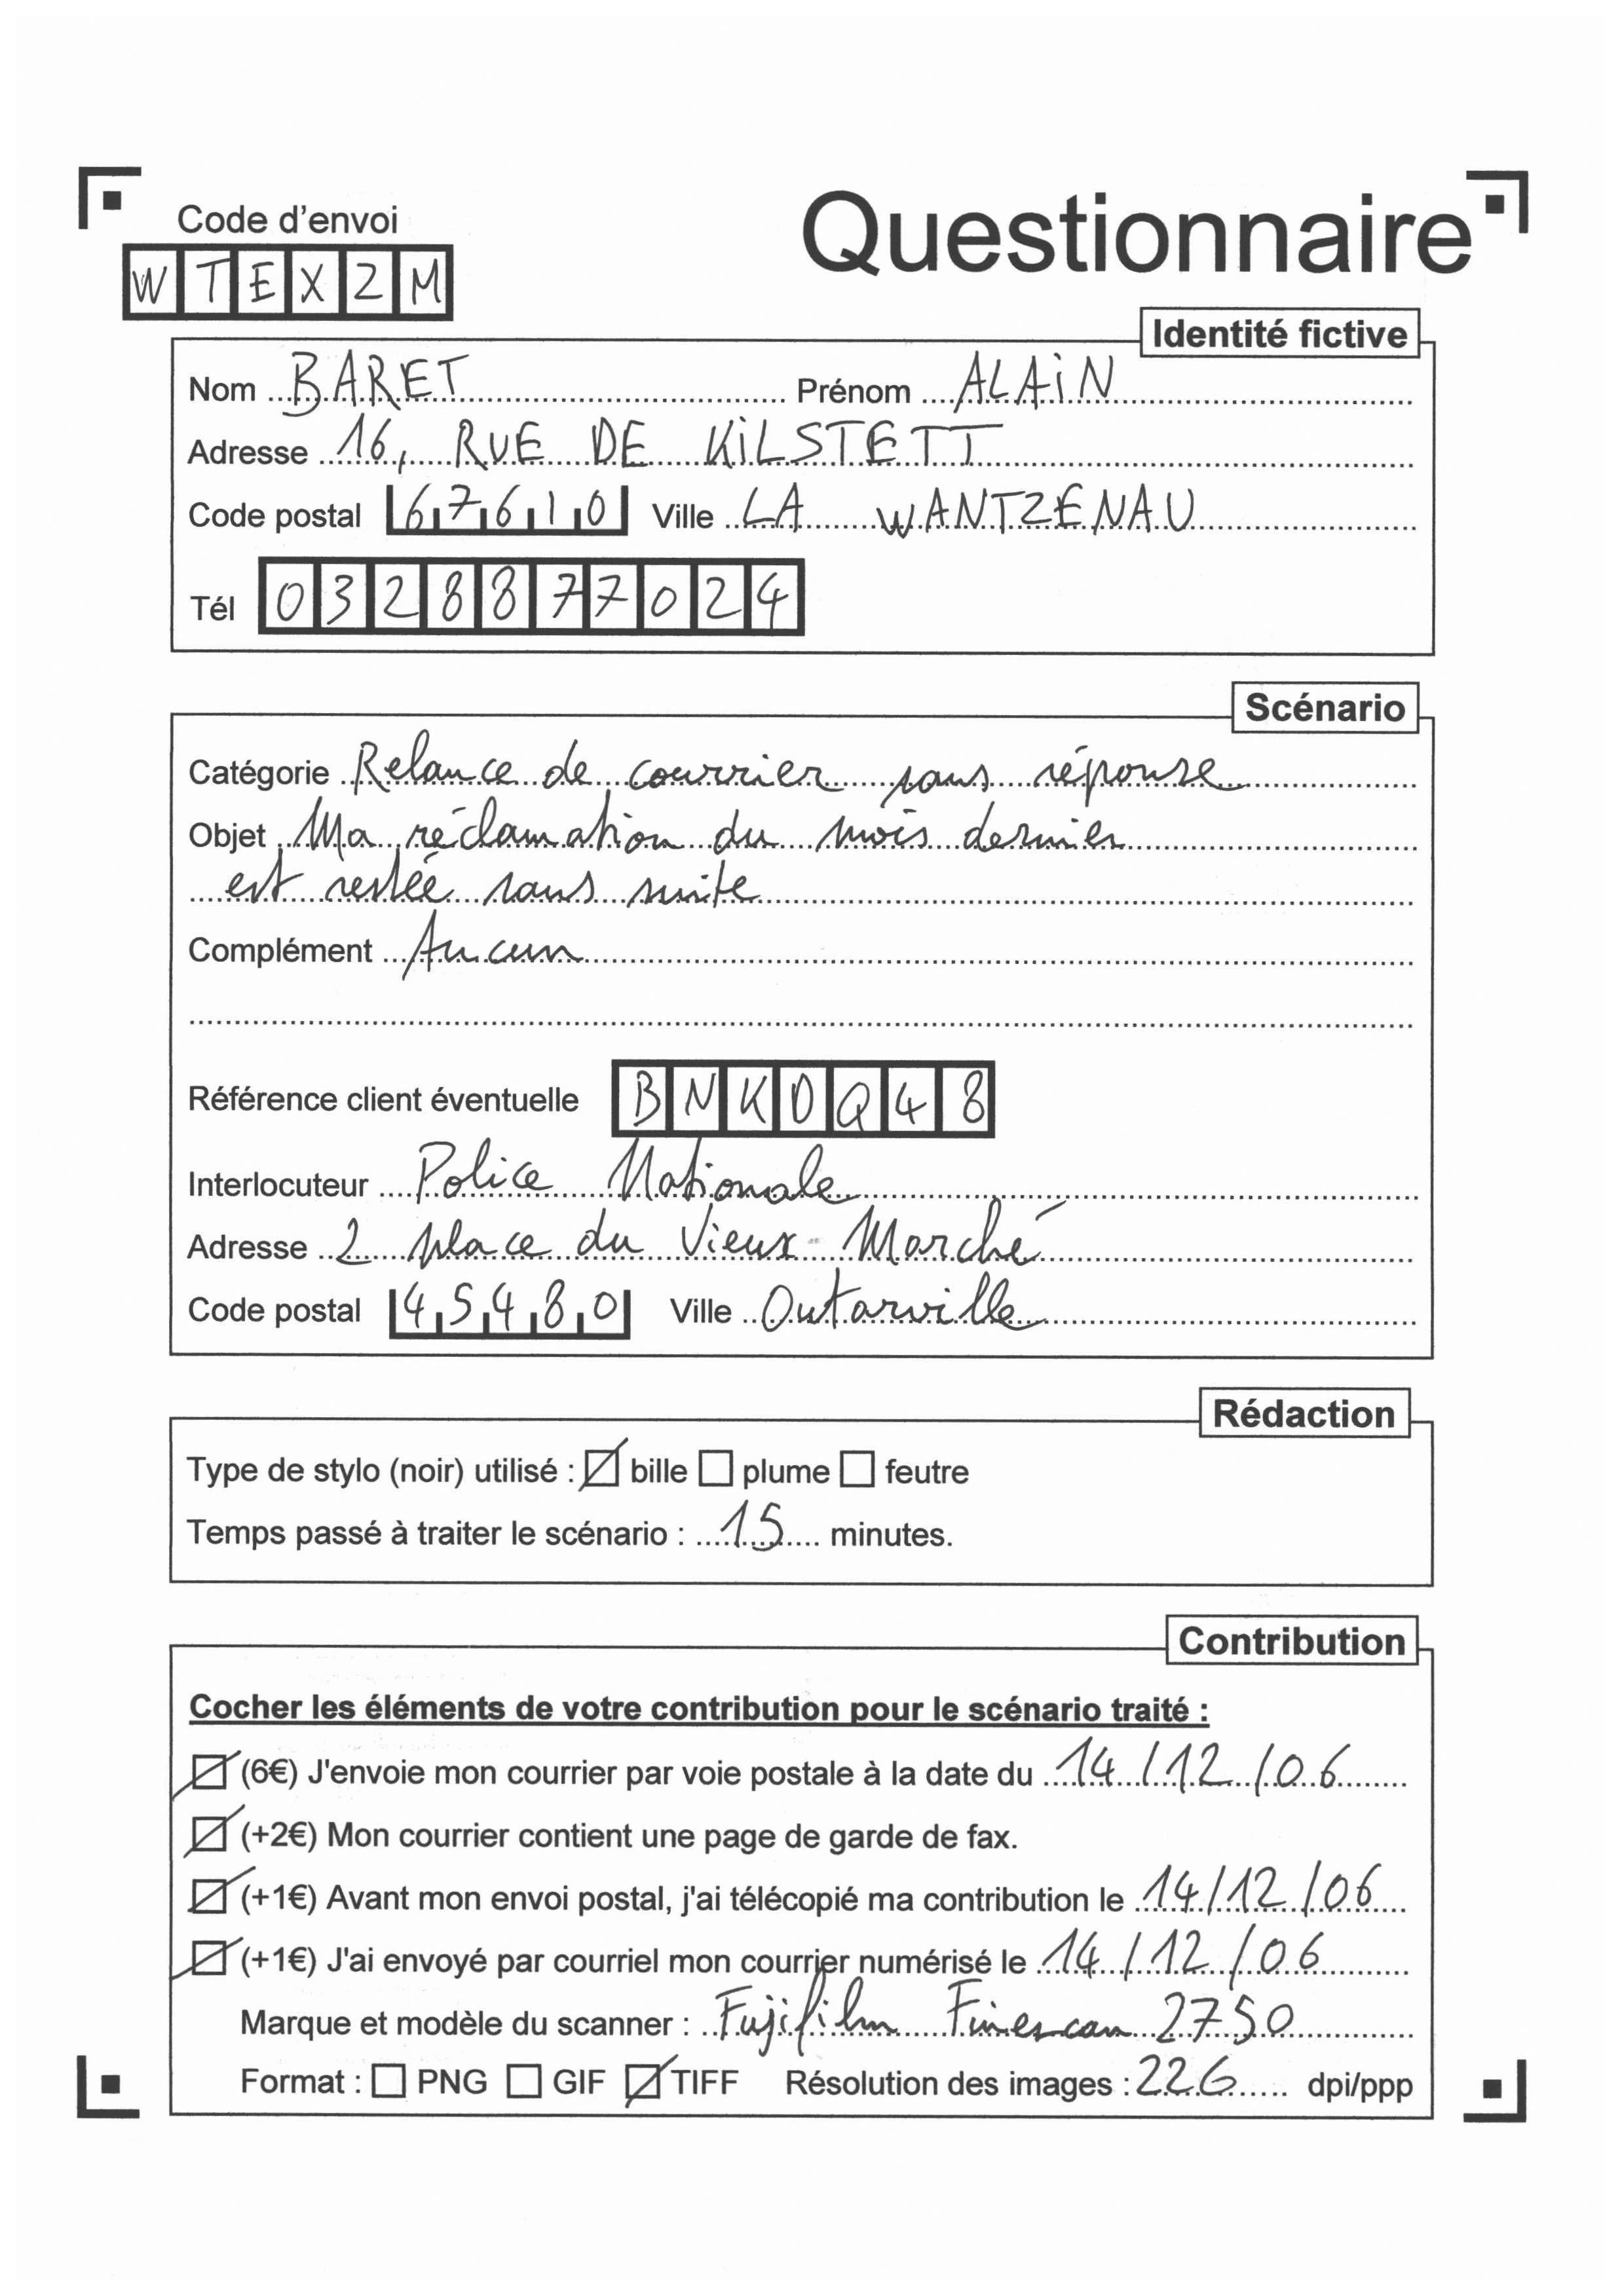 Code d'envoi
Questionnaire
WTEXZM
Identité fictive
Nom BARET Prénom ALAIN
Adresse 16, RUE DE KILSTETT
Code postal 67610 Ville LA WANTZENAU
Tél 0328877024
Scénario
Catégorie Relance de courrier sans réponse
Objet Ma réclamation du mois dernier
est restée sans suite
Complément Aucun
Référence client éventuelle BNKDQ48
Interlocuteur Police Nationale
Adresse 2 place du Vieux-Marché
Code postal 45480 Ville Outarville
Rédaction
Type de stylo (noir) utilisé : bille plume feutre
Temps passé à traiter le scénario : 15 minutes.
Contribution
Cocher les éléments de votre contribution pour le scénario traité :
(6€) J'envoie mon courrier par voie postale à la date du 14/12/06
(+2€) Mon courrier contient une page de garde de fax.
(+1€) Avant mon envoi postal, j'ai télécopié ma contribution le 14/12/06
(+1€) J'ai envoyé par courriel mon courrier numérisé le 14/12/06
Marque et modèle du scanner : Fujifilm Finescan 2750
Format : PNG GIF TIFF Résolution des images : 226 dpi/ppp